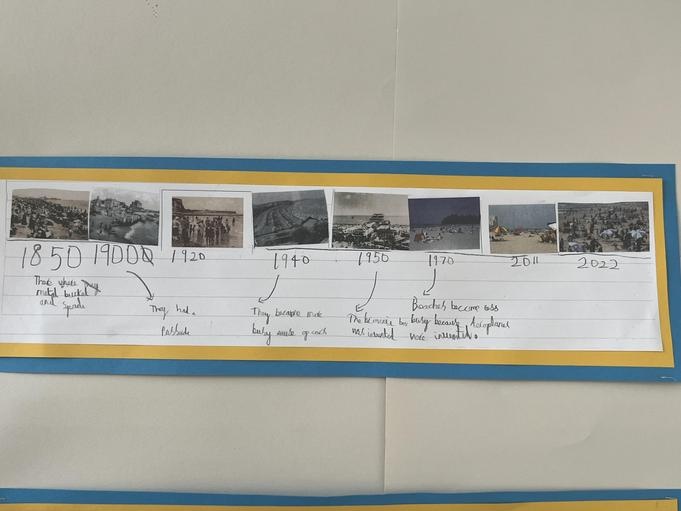 1850 1900 1920 1940 1950 1970 2011 2022
There where
metal bucket
and Spade
They had
They became more
busy cause of cars
The bikini
was invented
Beaches become less
busy because Aeroplanes
were invented.